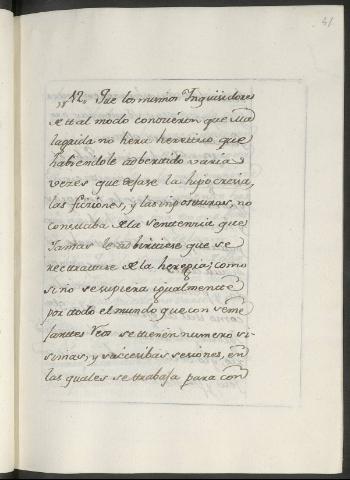 41
„12„ Que los mismos Inquisidores
de ttal modo conocieron que Ma
lagrida no hera hereticco que
habiendole adbertido varias
vezes que dejase la hipocrecia,
las ficiones, y las inposturas, no
constaba de la Sentencia que
Jamas le adbirtiese que se
rectractare de la heregia; como
si no se supiera igualmentte
por ttodo el mundo que con seme
janttes Reos se ttienen numero si-
simas, y succecibas seciones, en
las quales se ttrabaja para con